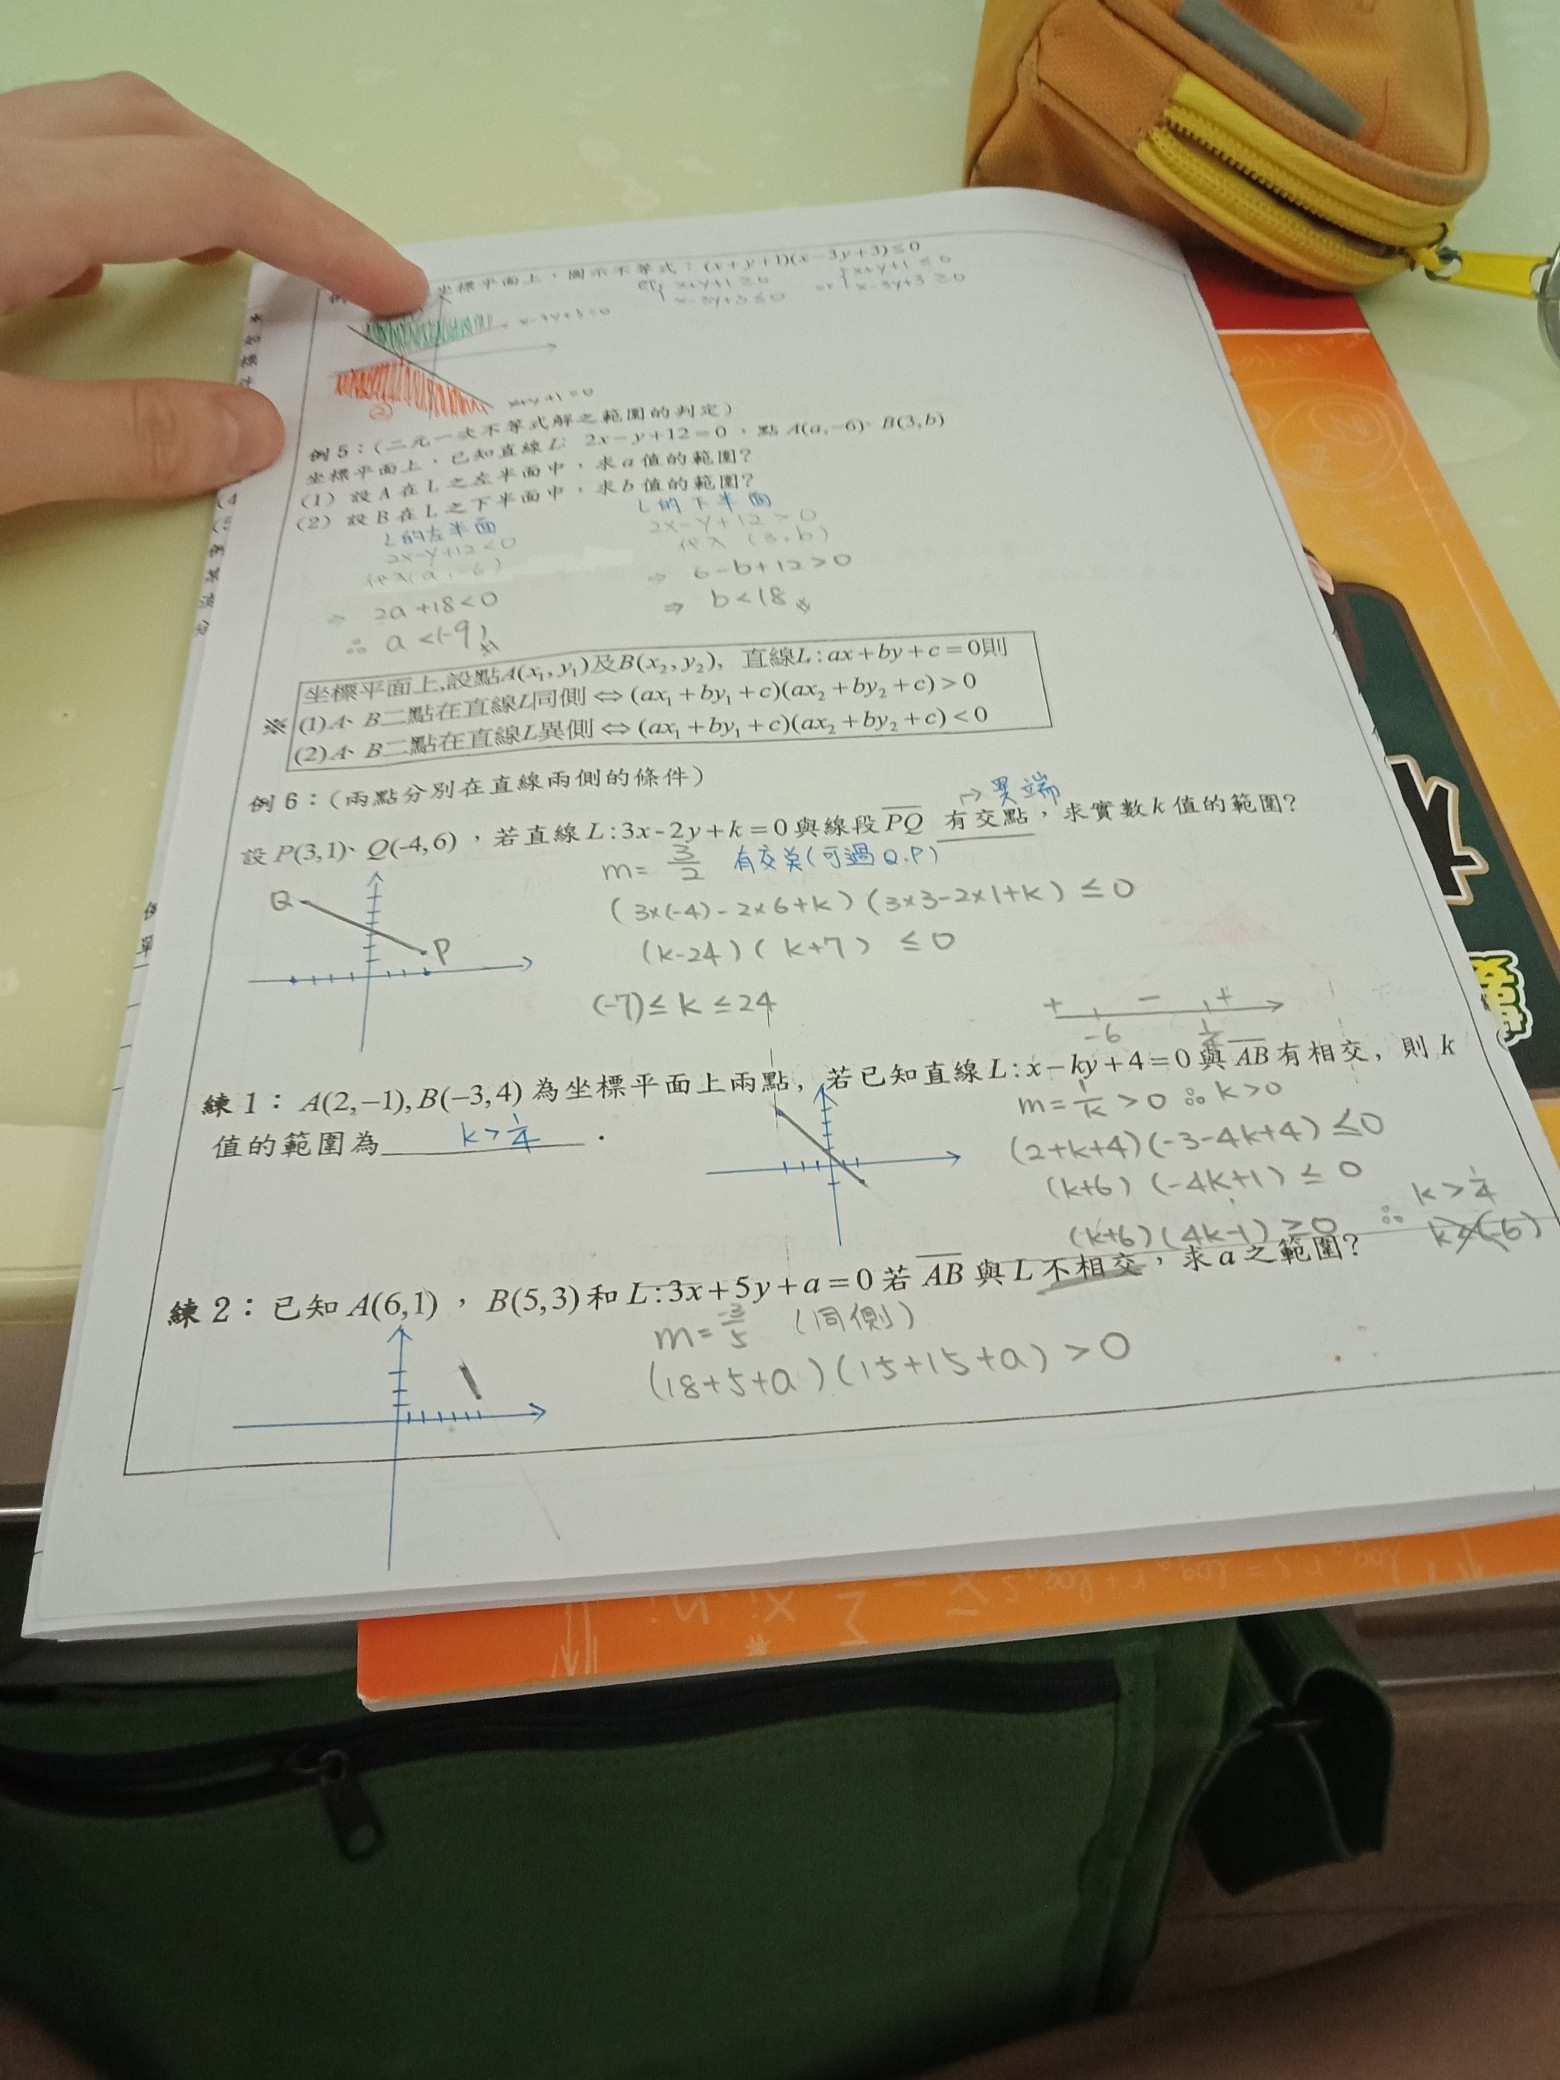 坐標平面上，圖示不等式：(x+y+1)(x−3y+3)≤0
x+y+1≥0
x-3y+3≤0
or
x+y+1≤0
x-3y+3≥0
x-3y+3=0
x+y+1=0
例5：(二元一次不等式解之範圍的判定)
坐標平面上，已知直線L: 2x−y+12=0，點A(a,−6)、B(3,b)
(1) 設A在L之左半面中，求a值的範圍?
(2) 設B在L之下半面中，求b值的範圍?
L的左半面
2x-y+12<0
代入(a,-6)
⇒ 2a+18<0
∴ a<(-9)
L的下半面
2x-y+12>0
代入 (3,b)
⇒ 6-b+12>0
⇒ b<18
坐標平面上,設點A(x₁,y₁)及B(x₂,y₂)，直線L:ax+by+c=0則
※(1)A、B二點在直線L同側⇔(ax₁+by₁+c)(ax₂+by₂+c)>0
(2)A、B二點在直線L異側⇔(ax₁+by₁+c)(ax₂+by₂+c)<0
例6：(兩點分別在直線兩側的條件)
→異端
設P(3,1)、Q(-4,6)，若直線L:3x-2y+k=0與線段PQ 有交點，求實數k值的範圍?
m=3/2 有交點(可過Q.P)
(3×(-4)-2×6+k)(3×3-2×1+k)≤0
(k-24)(k+7)≤0
(-7)≤k≤24
Q
P
+ − +
-6 1/4
練1：A(2,−1),B(−3,4)為坐標平面上兩點，若已知直線L:x−ky+4=0與AB有相交，則k
值的範圍為 k>1/4 .
m=1/k>0 ∴k>0
(2+k+4)(-3-4k+4)≤0
(k+6)(-4k+1)≤0
(k+6)(4k-1)≥0 ∴ k>1/4
練2：已知A(6,1)，B(5,3)和L:3x+5y+a=0若AB與L不相交，求a之範圍?
m=-3/5 (同側)
(18+5+a)(15+15+a)>0